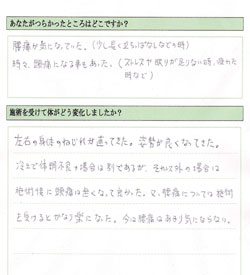 あなたがつらかったところはどこですか?
腰痛が気になっていた。(少し長く立ちっぱなしなどの時)
時々、頭痛になる事もあった。(ストレスや眠りが足りない時、疲れた
時など)
施術を受けて体がどう変化しましたか?
左右の身体のねじれが直ってきた。姿勢が良くなってきた。
冷えで体調不良の場合は別であるが、それ以外の場合は
施術後に頭痛は無くなって良かった。又、腰痛については施術
を受けるとかなり楽になった。今は腰痛はあまり気にならない。